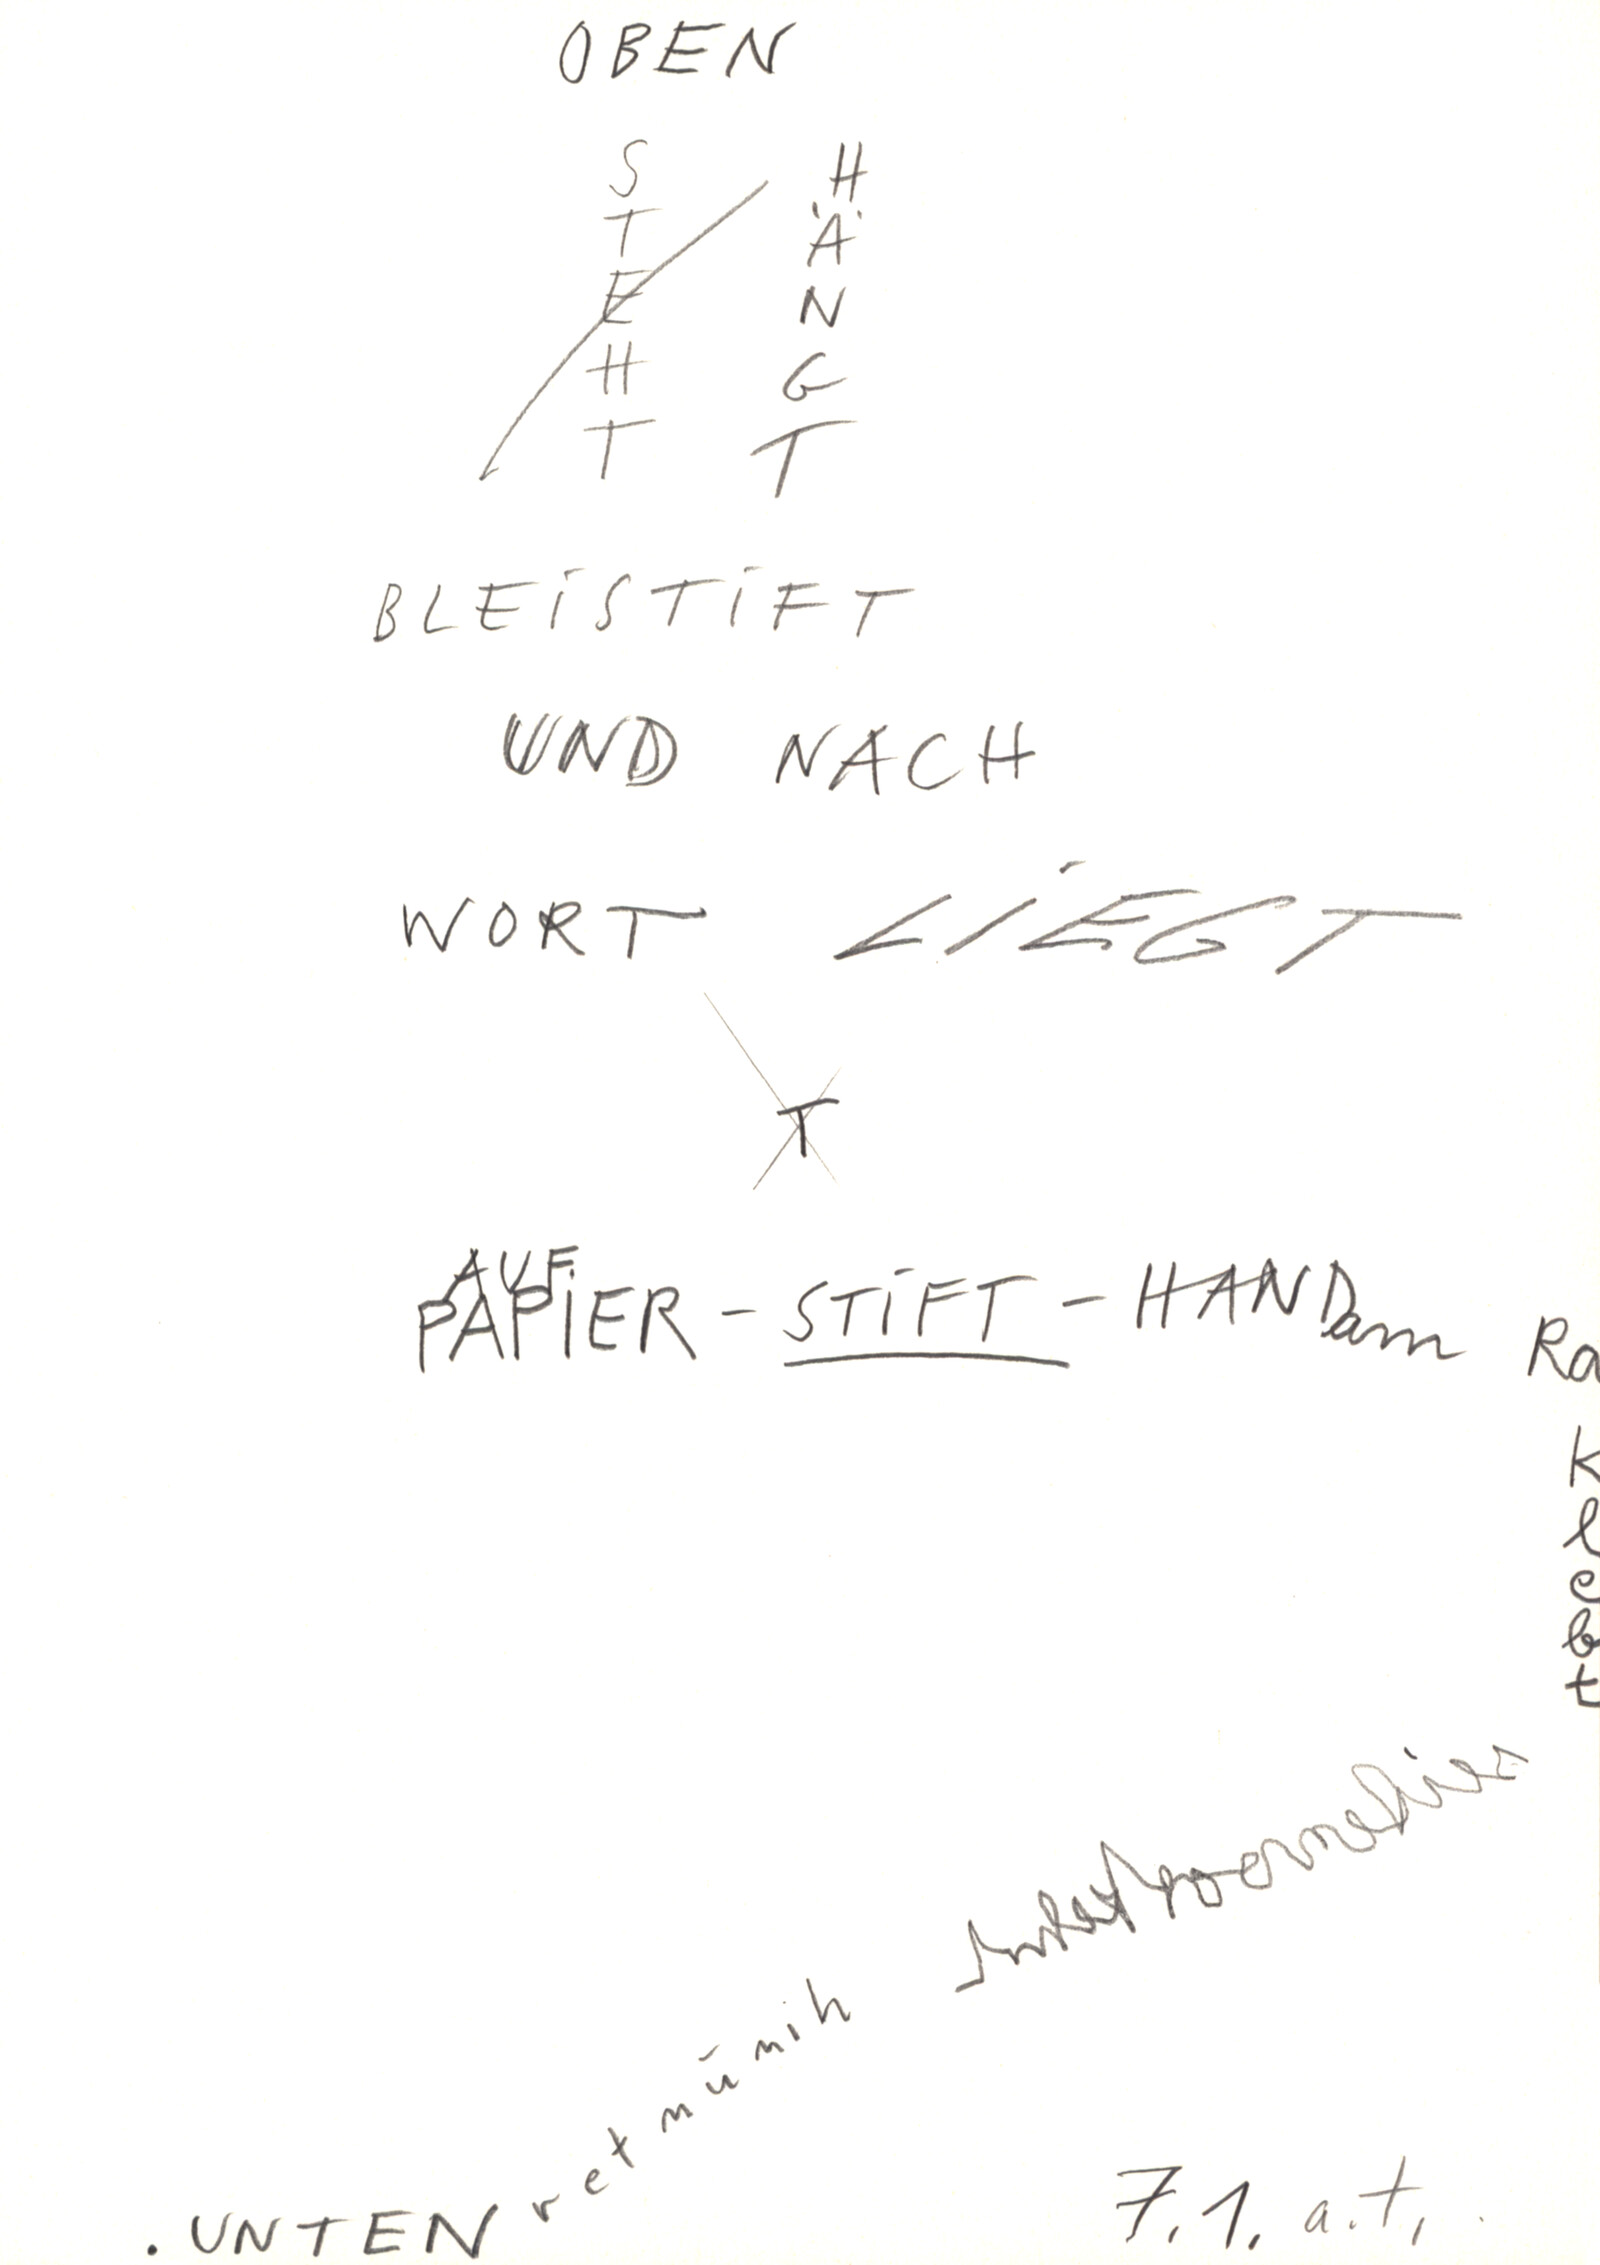 OBEN
STEHT
HÄNGT
BLEiSTiFT
UND NACH
WORT LiEGT
T
AUF
PAPiER - STiFT - HAND am Ra
klebt
.UNTEN
7.1. a.t.